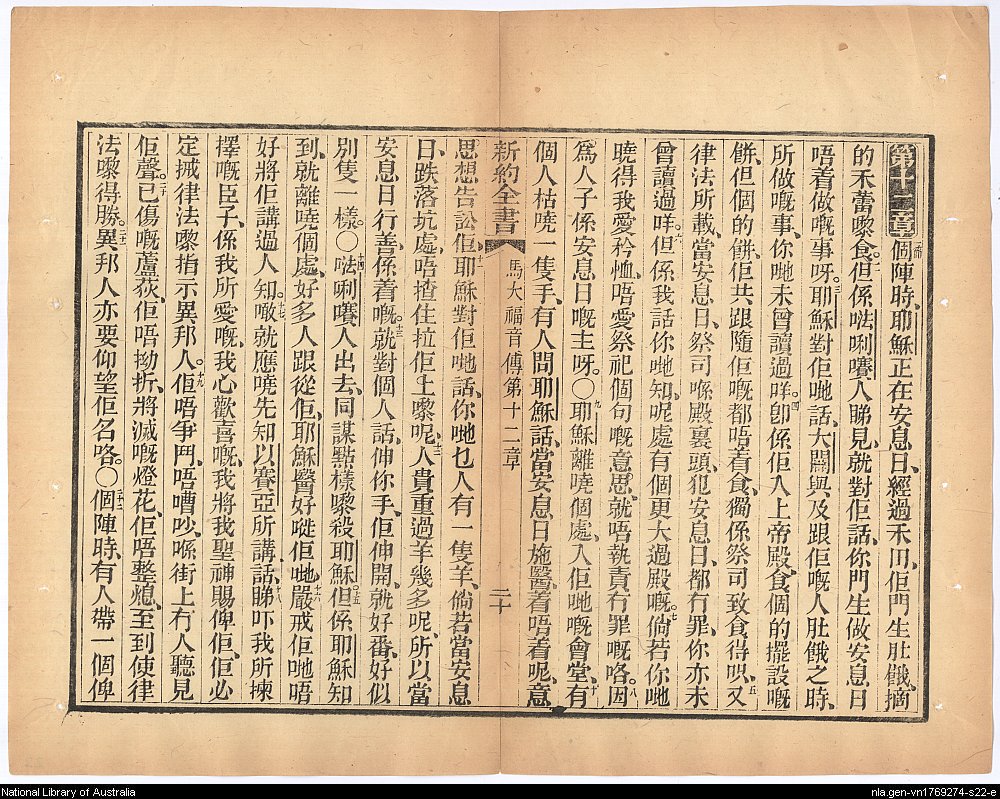 第十二章 一節 個陣時、耶穌正在安息日、經過禾田、佢門生肚饑、摘
的禾蕾嚟食。二但係㗇唎賽人睇見、就對佢話、你門生做安息日
唔着做嘅事呀。三耶穌對佢哋話、大闢與及跟佢嘅人肚餓之時、
所做嘅事、你哋未曾讀過咩。四卽係佢入上帝殿、食個的擺設嘅
餅、但個的餅、佢共跟隨佢嘅都唔着食、獨係祭司致食得呮。五又
律法所載、當安息日、祭司喺殿裏頭、犯安息日、都冇罪、你亦未
曾讀過咩。六但係我話你哋知、呢處有個更大過殿嘅。七倘若你哋
曉得我愛矜恤、唔愛祭祀個句嘅意思、就唔執責冇罪嘅咯。八因
爲人子係安息日嘅主呀。〇九耶穌離嘵個處、入佢哋嘅會堂、十有
個人枯嘵一隻手、有人問耶穌話、當安息日施醫、着唔着呢、意
新約全書 馬太福音傳第十二章 二十
思想告訟佢、十一耶穌對佢哋話、你哋乜人有一隻羊、倘若當安息
日跌落坑處、唔揸住拉佢上嚟呢、十二人貴重過羊幾多呢、所以當
安息日行善、係着嘅。十三就對個人話、伸你手、佢伸開、就好番、好似
別隻一樣。〇十四㗇唎賽人出去、同謀點樣嚟殺耶穌。十五但係耶穌知
到、就離嘵個處、好多人跟從佢、耶穌醫好嘥佢哋、十六嚴戒佢哋唔
好將佢講過人知。十七噉就應嘵先知以賽亞所講話、十八睇吓我所揀
擇嘅臣子、係我所愛嘅、我心歡喜嘅、我將我聖神賜俾佢、佢必
定𢬿律法嚟指示異邦人。十九佢唔爭鬥、唔嘈吵、喺街上冇人聽見
佢聲。二十已傷嘅蘆荻、佢唔拗折、將滅嘅燈花、佢唔整熄、至到使律
法嚟得勝。二十一異邦人亦要仰望佢名咯。〇二十二個陣時、有人帶一個俾
National Library of Australia
nla.gen-vn1769274-s22-e